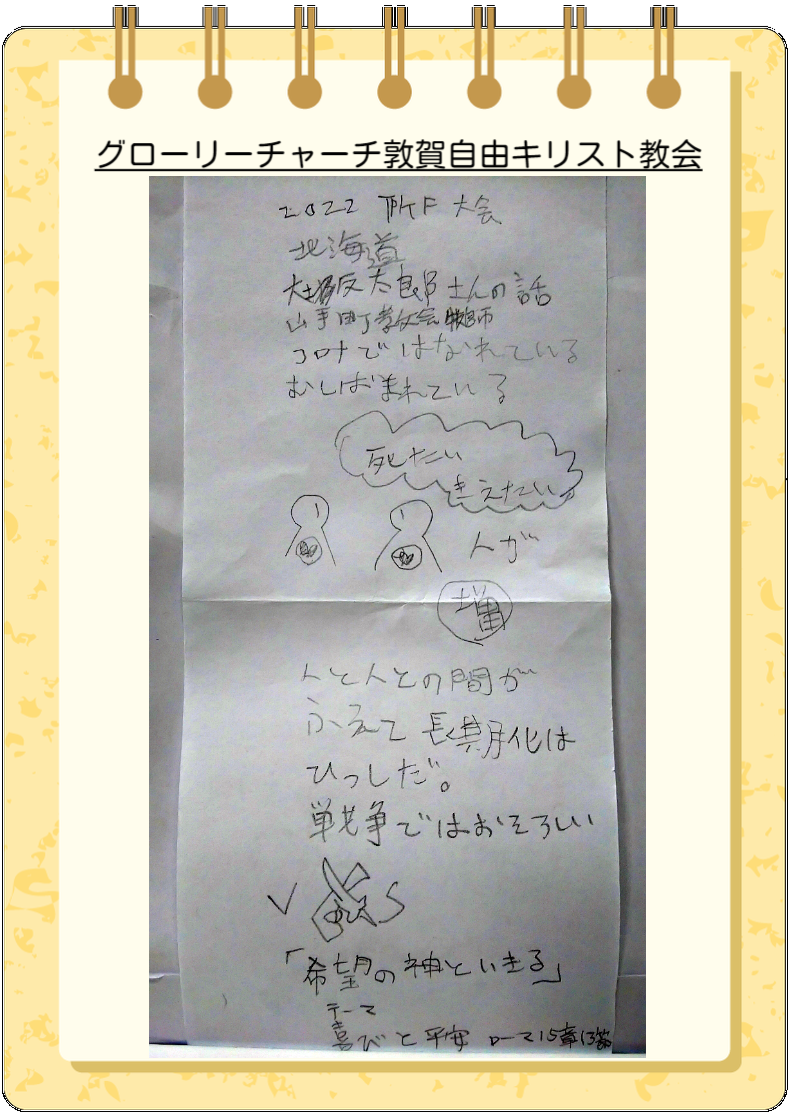 グローリーチャーチ敦賀自由キリスト教会
2022 大会
北海道
大坂太郎さんの話
山手町教会牧師
コロナではなれている
むしばまれている
死たい
きえたい
人が
増
人と人との間が
ふえて長期化は
ひっしだ。
戦争ではおそろしい
V S
「希望の神といきる」
テーマ
喜びと平安 ローマ15章13節